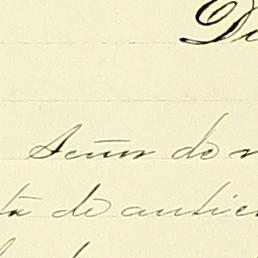 Di
Señor de
ta de antic